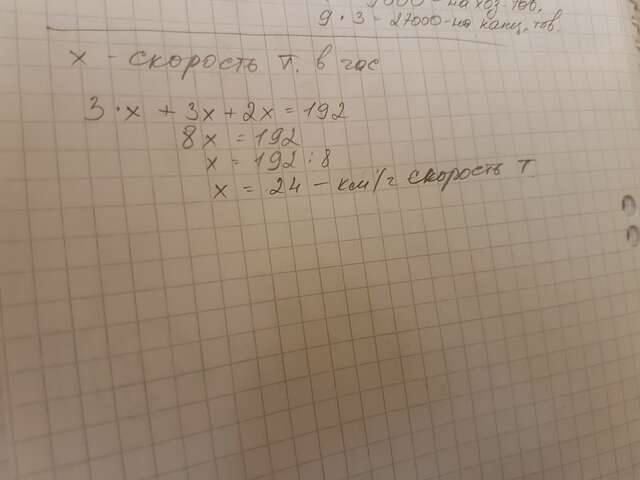 9000 - на хоз. тов.
9 · 3 - 27000 - на канц. тов.
x - скорость т. в час
3 · x + 3x + 2x = 192
8x = 192
x = 192 : 8
x = 24 - км/ч скорость т.